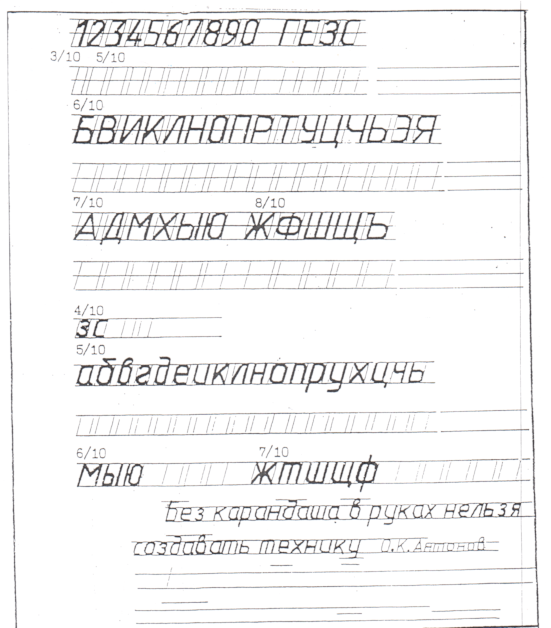 1234567890 ГЕЗС
3/10 5/10
6/10
БВИКЛНОПРТУЦЧЬЭЯ
7/10 8/10
АДМХЫЮ ЖФШЩЪ
4/10
зс
5/10
абвгдеиклнопрухцчь
6/10 7/10
мыю жтшщф
Без карандаша в руках нельзя
создавать технику О.К.Антонов